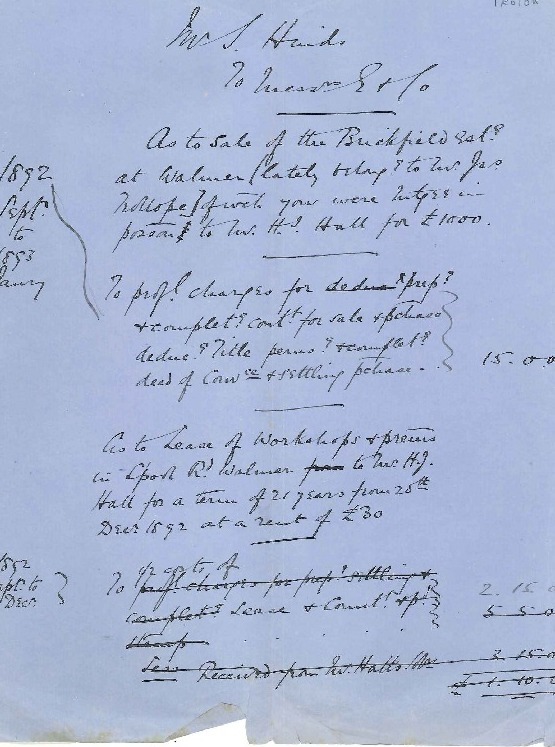 Mr S. Hinds
To Messrs E & Co
As to Sale of the Brickfield Est.
at Walmer [lately belong.g to Mr Jas
] of wch you were Mtgee in
posson] to Mr H.J. Hall for £1000.
1892
Sept.
to
1893
Jany
To profl. charges for deduc.g prep.g
& complet.g cont. for sale & pchase
deduc.g Title perus.g & complet.g
deed of Convce & settling pchase. 15. 0 0
As to Lease of Workshops & prems
in Dpool Rd. Walmer from to Mr H.J.
Hall for a term of 21 years from 28th
Decr 1892 at a rent of £30
1892
Sept. to
Decr.
1/2 costs of
To profl charges for prep.g settling &
complet.g Lease & Count. & p.t 2. 15. 0
5 5 0
stamp
Less Received from Mr Halls 3. 15. 0
£ 1. 10. 0